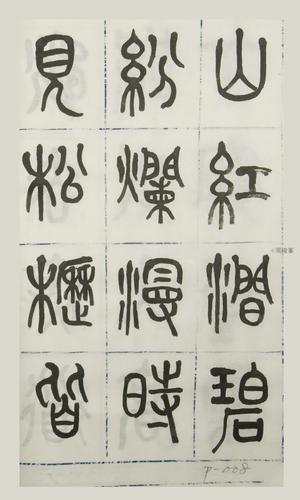 山紅澗碧
紛爛漫時
見松櫪皆
P-008